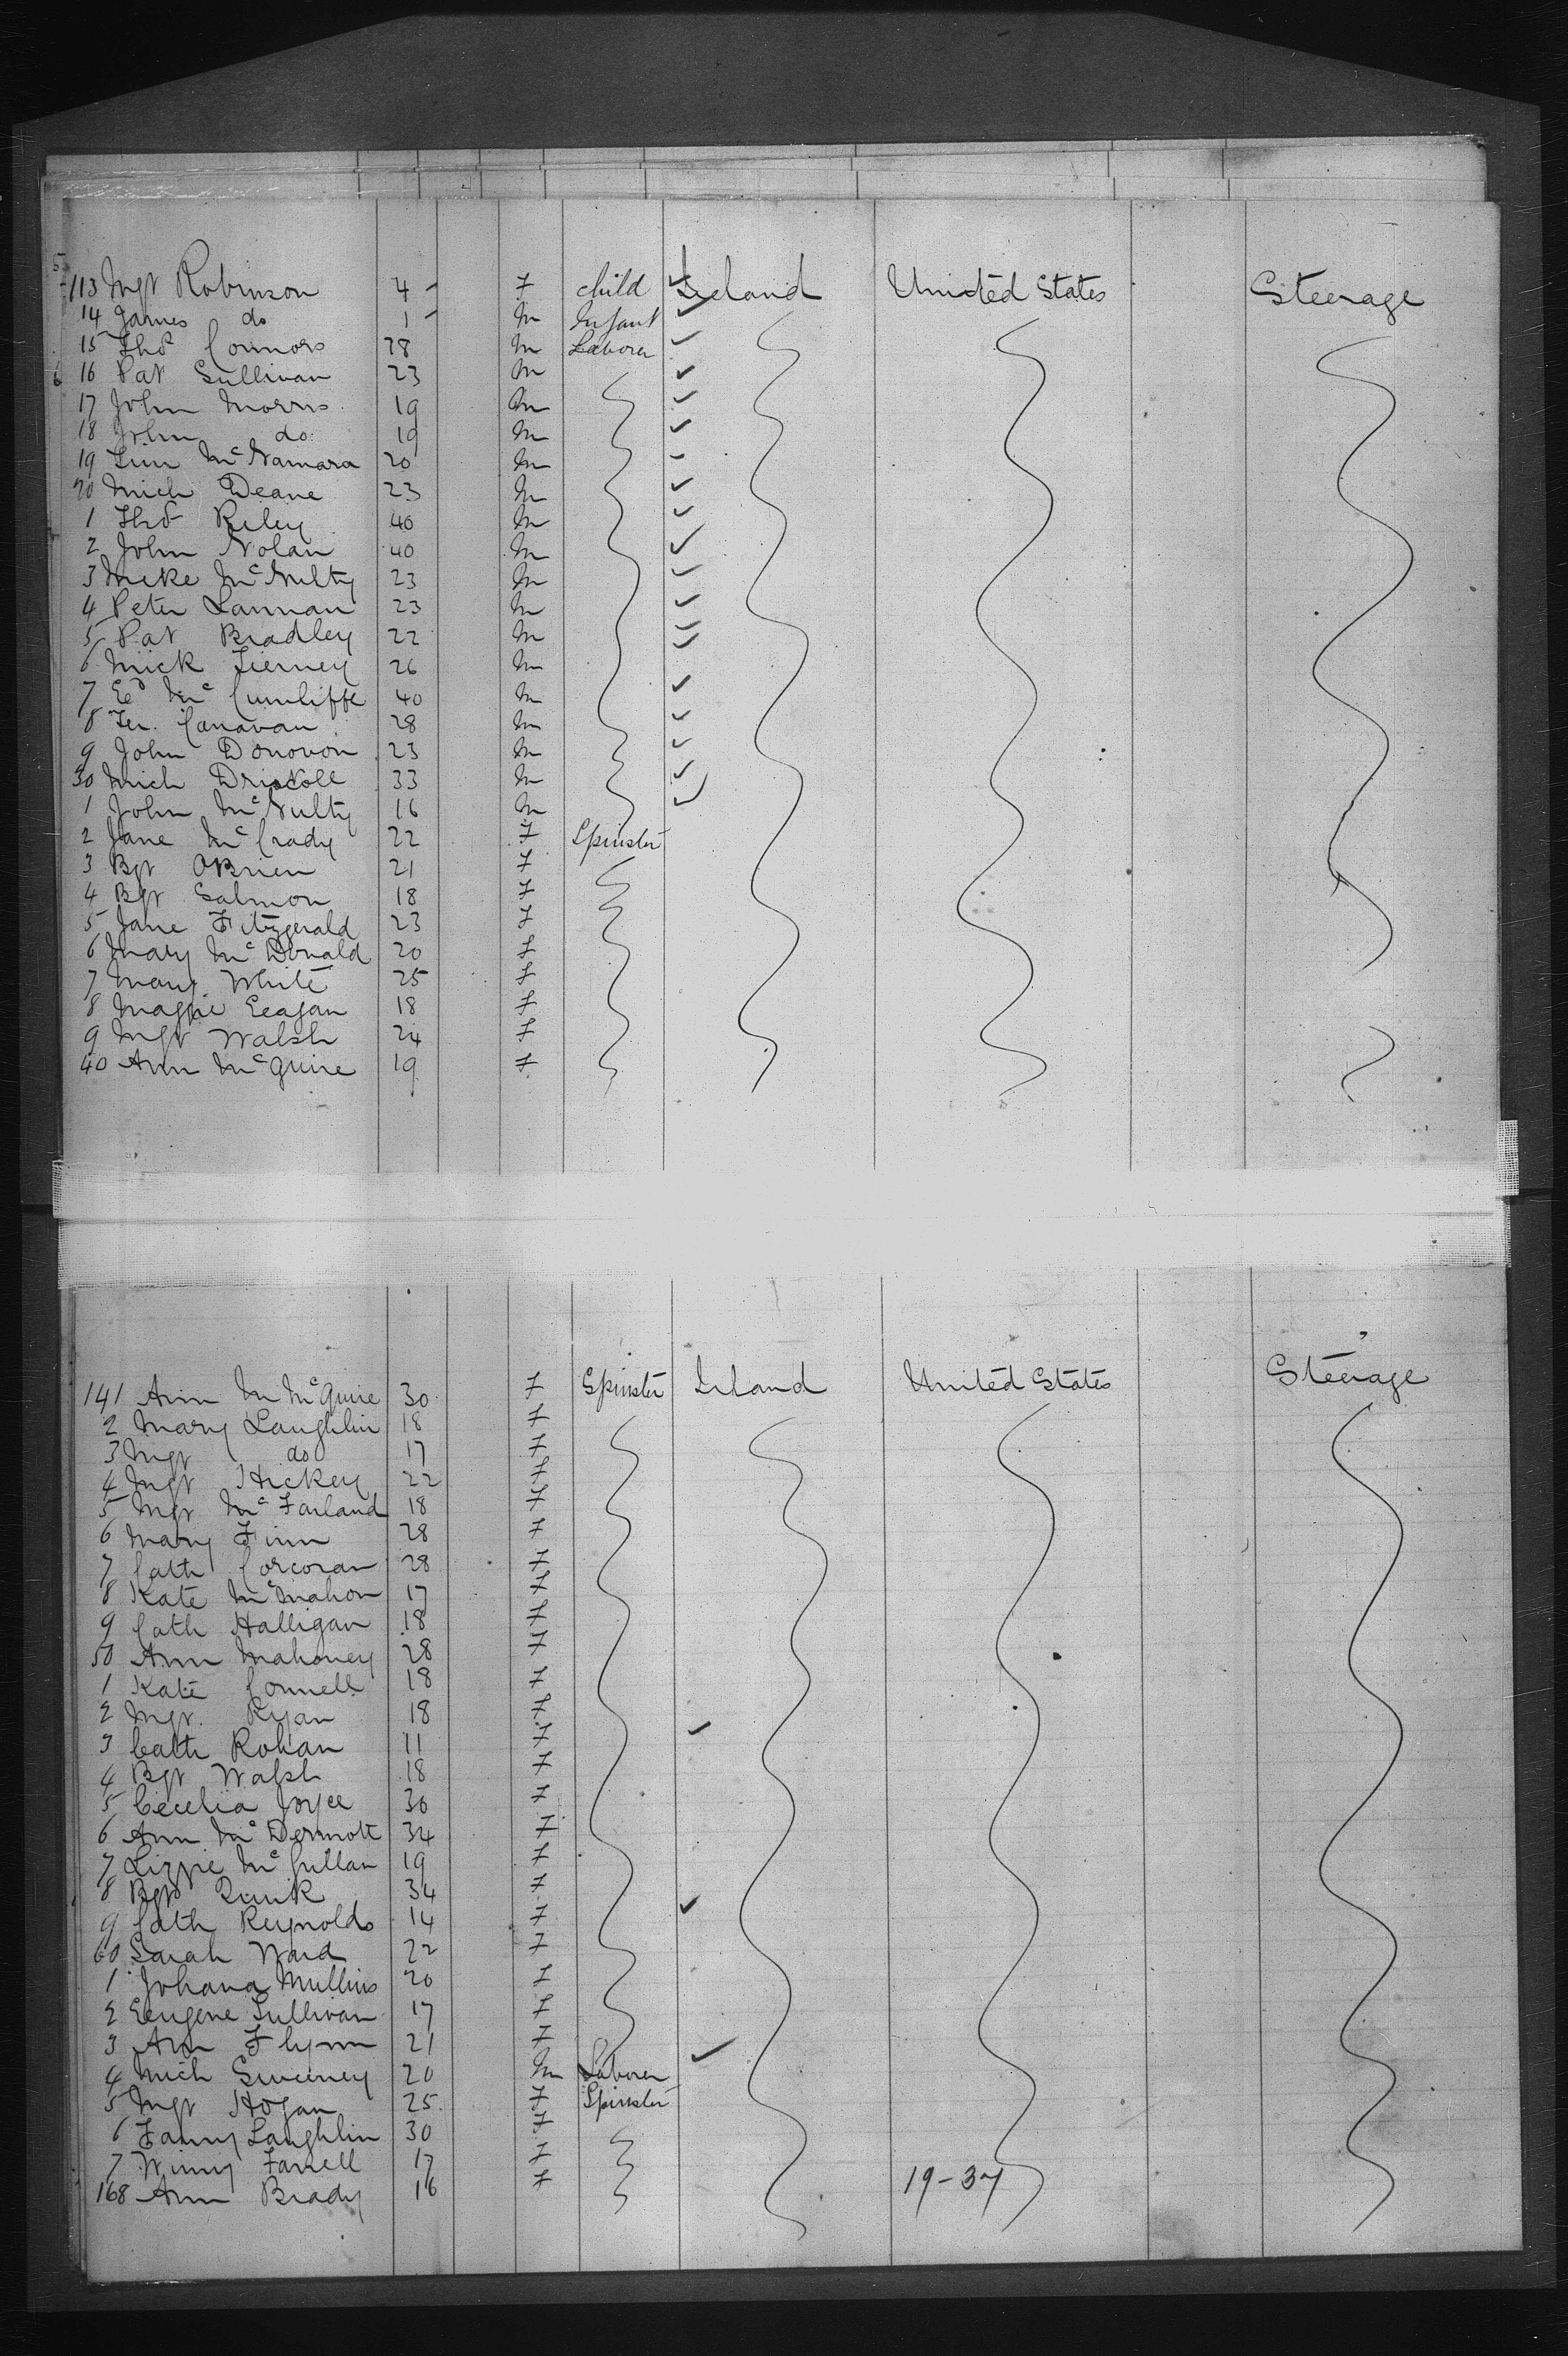 113 Mgt Robinson 4 - F child Ireland United States Steerage
14 James do 1 - M Infant
15 Thos Connors 28 M Laborer
16 Pat Sullivan 23 M
17 John Morris 19 M
18 John do 19 M
19 Tim McNamara 20 M
20 Mich Deane 23 M
1 Thos Riley 40 M
2 John Nolan 40 M
3 Mike McNulty 23 M
4 Peter Lannan 23 M
5 Pat Bradley 22 M
6 Mick Tierney 26 M
7 Ed McCunliffe 40 M
8 Ter. Canavan 28 M
9 John Donovon 23 M
30 Mich Driscoll 33 M
1 John McNulty 16 M
2 Jane McCrady 22 F Spinster
3 Bgt OBrien 21 F
4 Bgt Salmon 18 F
5 Jane Fitzgerald 23 F
6 Mary McDonald 20 F
7 Mary White 25 F
8 Maggie Eeagan 18 F
9 Mgt Walsh 24 F
40 Ann McGuire 19 F
141 Ann M McGuire 30 F Spinster Ireland United States Steerage
2 Mary Laughlin 18 F
3 Mgt do 17 F
4 Mgt Hickey 22 F
5 Mgt McFarland 18 F
6 Mary Finn 28 F
7 Cath Corcoran 28 F
8 Kate McMahon 17 F
9 Cath Halligan 18 F
50 Ann Mahoney 28 F
1 Kate Connell 18 F
2 Mgt. Ryan 18 F
3 Cath Rohan 11 F
4 Bgt Walsh 18 F
5 Cecelia Joyce 30 F
6 Ann McDermott 34 F
7 Lizzie McCullan 19 F
8 Bgt Quirk 34 F
9 Cath Reynolds 14 F
60 Sarah Ward 22 F
1 Johana Mullins 20 F
2 Eeugene Sullivan 17 F
3 Ann Flynn 21 F
4 Mich Sweeney 20 M Laborer
5 Mgt Hogan 25 F Spinster
6 Fanny Laughlin 30 F
7 Winny Farrell 17 F
168 Ann Brady 16 F 19-37